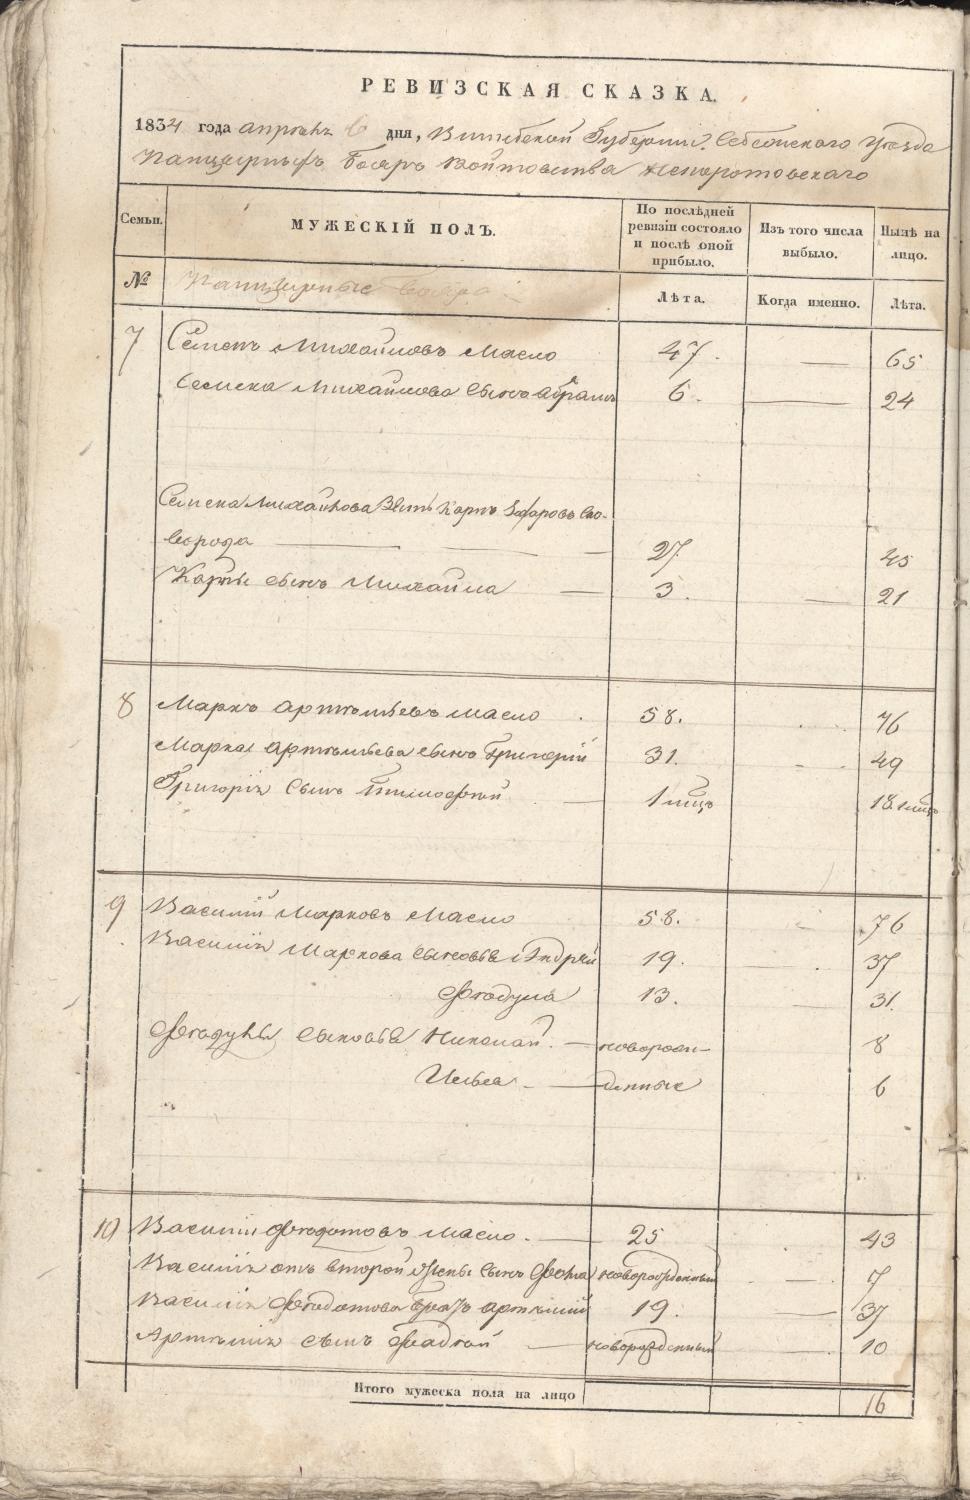 РЕВИЗСКАЯ СКАЗКА.
1834 года апреля 6 дня, Витебской Губернии Себежского Уезда
Панцырныхъ Бояръ Войтовства Непоротовскаго
Семьи. МУЖЕСКІЙ ПОЛЪ. По послѣдней ревизіи состояло и послѣ оной прибыло. Изъ того числа выбыло. Нынѣ на лицо.
№ Панцырные бояра Лѣта. Когда именно. Лѣта.
7 Семенъ Михайловъ Масло 47. — 65
Семена Михайлова сынъ Абрамъ 6. — 24
Семена Михайлова Зять Карпъ Захаровъ Ско-
ворода — 27. 45
Карпа сынъ Михайла — 3. — 21
8 Маркъ Артемьевъ Масло 58. 76
Марка Артемьева сынъ Григорій 31. 49
Григорія сынъ Тимофей — 1 мцъ 18. 1 мцъ
9 Василій Марковъ Масло 58. 76
Василія Маркова сыновья Андрей 19. 37
Федула 13. 31.
Федулы сыновья Николай — новорож- 8
Илья — денные 6
10 Василій Федотовъ Масло. — 25 43
Василія отъ второй жены сынъ Фома новорожденный — 7
Василія Федотова братъ Артемій 19. — 37
Артемія сынъ Фадей — новорожденный — 10
Итого мужеска пола на лицо 16